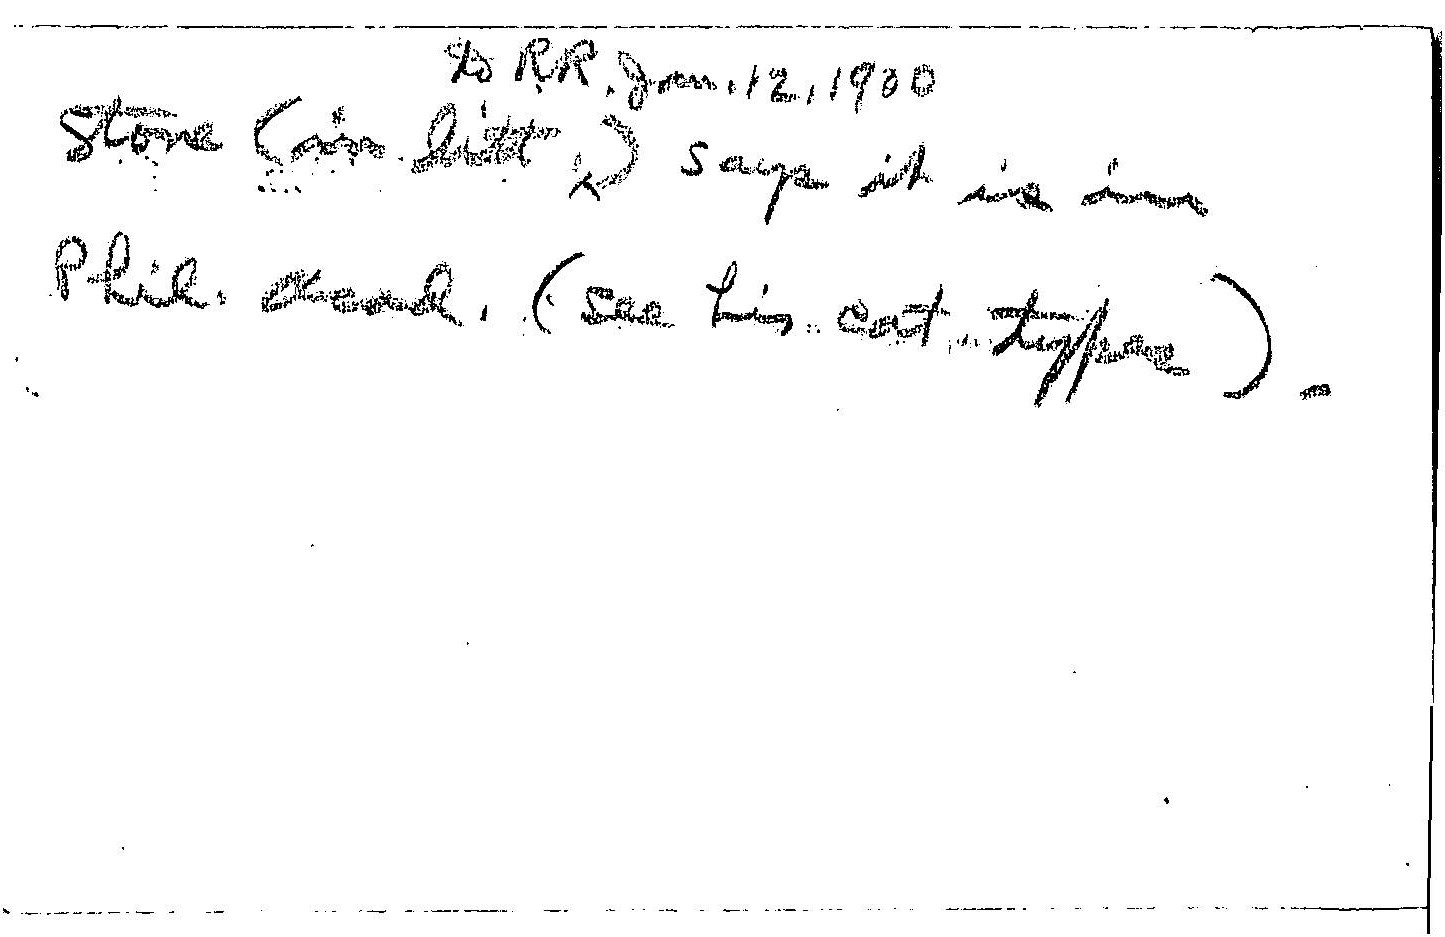 to RR. Jan. 12, 1930
Stone (in litt.) says it is in
Phil. Acad. (see his cat. types).